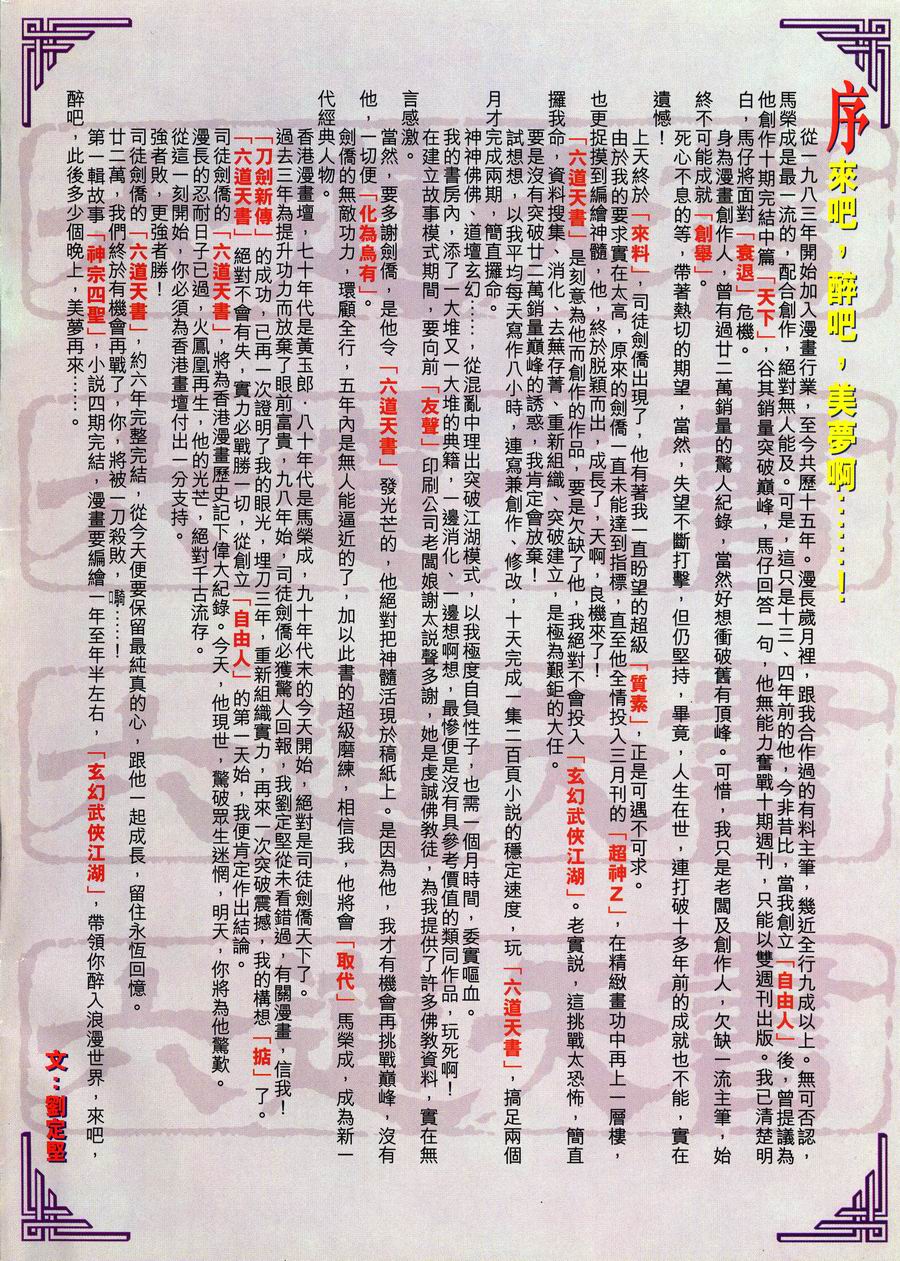 序
來吧，醉吧，美夢啊……！
從一九八三年開始加入漫畫行業，至今共歷十五年。漫長歲月裡，跟我合作過的有料主筆，幾近全行九成以上。無可否認，
馬榮成是最一流的，配合創作，絕對無人能及。可是，這只是十三、四年前的他，今非昔比，當我創立「自由人」後，曾提議為
他創作十期完結中篇「天下」，谷其銷量突破巔峰，馬仔回答一句，他無能力奮戰十期週刊，只能以雙週刊出版。我已清楚明
白，馬仔將面對「衰退」危機。
身為漫畫創作人，曾有過廿二萬銷量的驚人紀錄，當然好想衝破舊有頂峰。可惜，我只是老闆及創作人，欠缺一流主筆，始
終不可能成就「創舉」。
死心不息的等，帶著熱切的期望，當然，失望不斷打擊，但仍堅持，畢竟，人生在世，連打破十多年前的成就也不能，實在
遺憾！
上天終於「來料」，司徒劍僑出現了，他有著我一直盼望的超級「質素」，正是可遇不可求。
由於我的要求實在太高，原來的劍僑一直未能達到指標，直至他全情投入三月刊的「超神Z」，在精緻畫功中再上一層樓，
也更捉摸到編繪神髓，他，終於脫穎而出，成長了，天啊，良機來了！
「六道天書」是刻意為他而創作的作品，要是欠缺了他，我絕對不會投入「玄幻武俠江湖」。老實說，這挑戰太恐怖，簡直
攞我命，資料搜集、消化、去蕪存菁、重新組織、突破建立，是極為艱鉅的大任。
要是沒有突破廿二萬銷量巔峰的誘惑，我肯定會放棄！
試想想，以我平均每天寫作八小時，連寫兼創作、修改，十天完成一集二百頁小說的穩定速度，玩「六道天書」，搞足兩個
月才完成兩期，簡直攞命。
神神佛佛、道壇玄幻……，從混亂中理出突破江湖模式，以我極度自負性子，也需一個月時間，委實嘔血。
我的書房內，添了一大堆又一大堆的典籍，一邊消化、一邊想啊想，最慘便是沒有具參考價值的類同作品，玩死啊！
在建立故事模式期間，要向前「友聲」印刷公司老闆娘謝太說聲多謝，她是虔誠佛敎徒，為我提供了許多佛敎資料，實在無
言感激。
當然，要多謝劍僑，是他令「六道天書」發光芒的，他絕對把神髓活現於稿紙上。是因為他，我才有機會再挑戰巔峰，沒有
他，一切便「化為烏有」。
劍僑的無敵功力，環顧全行，五年內是無人能逼近的了，加以此書的超級磨練，相信我，他將會「取代」馬榮成，成為新一
代經典人物。
香港漫畫壇，七十年代是黃玉郎，八十年代是馬榮成，九十年代末的今天開始，絕對是司徒劍僑天下了。
過去三年為提升功力而放棄了眼前富貴，九八年始，司徒劍僑必獲驚人回報，我劉定堅從未看錯過，有關漫畫，信我！
「刀劍新傳」的成功，已再一次證明了我的眼光，埋刀三年，重新組織實力，再來一次突破震撼，我的構想「掂」了。
「六道天書」絕對不會有失，實力必戰勝一切，從創立「自由人」的第一天始，我便肯定作出結論。
司徒劍僑的「六道天書」，將為香港漫畫歷史記下偉大紀錄。今天，他現世，驚破眾生迷惘，明天，你將為他驚歎。
漫長的忍耐日子已過，火鳳凰再生，他的光芒，絕對千古流存。
從這一刻開始，你必須為香港畫壇付出一分支持。
強者敗，更強者勝！
司徒劍僑的「六道天書」，約六年完整完結，從今天便要保留最純真的心，跟他一起成長，留住永恆回憶。
廿二萬，我們終於有機會再戰了，你，將被一刀殺敗，……！
第一輯故事「神宗四聖」，小說四期完結，漫畫要編繪一年至年半左右，「玄幻武俠江湖」，帶領你醉入浪漫世界，來吧，
醉吧，此後多少個晚上，美夢再來……。
文：劉定堅
六道天書
六道天書
六道天書
六道天書